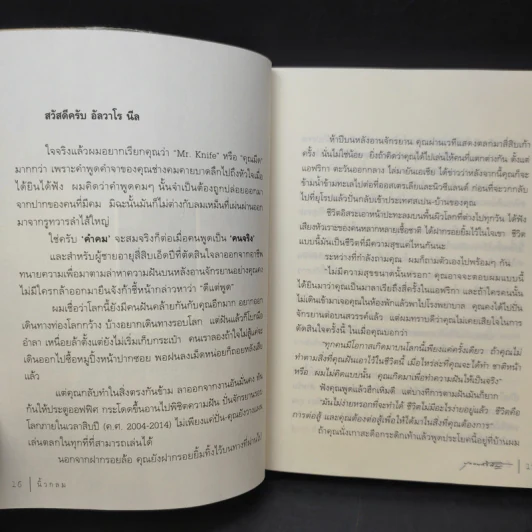 สวัสดีครับ อัลวาโร นีล
ใจจริงแล้วผมอยากเรียกคุณว่า "Mr. Knife" หรือ "คุณมีด"
มากกว่า เพราะคำพูดคำจาของคุณช่างคมคายบาดลึกไปถึงหัวใจเมื่อ
ได้ยินได้ฟัง ผมคิดว่าคำพูดคมๆ นั้นจำเป็นต้องถูกปล่อยออกมา
จากปากของคนที่มีคม มิฉะนั้นมันก็ไม่ต่างกับลมเหม็นที่เผ่นผ่านออก
มาจากรูทวารลำไส้ใหญ่
ใช่ครับ 'คำคม' จะสมจริงก็ต่อเมื่อคนพูดเป็น 'คนจริง'
และสำหรับผู้ชายอายุสี่สิบเอ็ดปีที่ตัดสินใจลาออกจากอาชีพ
ทนายความเพื่อมาตามล่าหาความฝันบนหลังอานจักรยานอย่างคุณ
ไม่มีใครกล้าออกมายืนจังก้าชี้หน้ากล่าวหาว่า "ดีแต่พูด"
ผมเชื่อว่าโลกนี้ยังมีคนฝันคล้ายกันกับคุณอีกมาก อยากออก
เดินทางท่องโลกกว้าง บ้างอยากเดินทางรอบโลก แต่แล้วก็โบกมือ
อำลา เหนื่อยล้าตั้งแต่ยังไม่เริ่มเก็บกระเป๋า คนเราลองถ้าไม่สู้แค่
เดินออกไปซื้อหมูปิ้งหน้าปากซอย พอฝนลงเม็ดหน่อยก็ถอยหลังเสีย
แล้ว
แต่คุณกลับทำในสิ่งตรงกันข้าม ลาออกจากงานอันมั่นคง หัน
ก้นให้ประตูออฟฟิศ กระโดดขึ้นอานไปพิชิตความฝัน ปั่นจักรยานรอบ
โลกภายในเวลาสิบปี (ค.ศ. 2004-2014) ไม่เพียงแค่ปั่น-คุณยังวางแผน
เล่นตลกในทุกที่ที่สามารถเล่นได้
นอกจากฝากรอยล้อ คุณยังฝากรอยยิ้มทิ้งไว้บนทางที่ผ่านไป
16 | นิ้วกลม
ห้าปีบนหลังอานจักรยาน คุณผ่านเวทีแสดงตลกมาสี่สิบเก้า
ครั้ง นั่นไม่ใช่น้อย ยิ่งถ้าคิดว่าคุณได้ไปเล่นให้คนที่แตกต่างกัน ตั้งแต่
แอฟริกา ตะวันออกกลาง ไล่มายันเอเชีย ได้ข่าวว่าหลังจากนี้คุณก็จะ
ข้ามน้ำข้ามทะเลไปต่อที่ออสเตรเลียและนิวซีแลนด์ ก่อนที่จะวกกลับ
ไปที่ยุโรปแล้วปั่นกลับเข้าประเทศสเปน-บ้านของคุณ
ชีวิตอิสระเอาหน้าปะทะลมบนพื้นผิวโลกที่ต่างไปทุกวัน ได้ฟัง
เสียงหัวเราะของคนหลากหลายเชื้อชาติ ได้ฝากรอยยิ้มไว้ในใจเขา ชีวิต
แบบนี้มันเป็นชีวิตที่มีความสุขแค่ไหนกันนะ
ระหว่างที่กำลังถามคุณ ผมก็ถามตัวเองไปพร้อมๆ กัน
"ไม่มีความสุขขนาดนั้นหรอก" คุณอาจจะตอบผมแบบนี้
ได้ยินมาว่าคุณเป็นมาลาเรียถึงสี่ครั้งในแอฟริกา และถ้าใครคนนั้น
ไม่เดินเข้ามาเจอคุณในห้องพักแล้วพาไปโรงพยาบาล คุณคงได้ไปปั่น
จักรยานต่อบนสวรรค์แล้ว แต่ผมทราบดีว่าคุณไม่เคยเสียใจในการ
ตัดสินใจครั้งนี้ ในเมื่อคุณบอกว่า
"ทุกคนมีโอกาสเกิดมาบนโลกนี้เพียงแค่ครั้งเดียว ถ้าคุณไม่
ทำตามสิ่งที่คุณฝันเอาไว้ในชีวิตนี้ เมื่อไหร่ล่ะที่คุณจะได้ทำ ชาติหน้า
หรือ ผมไม่คิดแบบนั้น คุณเกิดมาเพื่อทำความฝันให้เป็นจริง"
ฟังคุณพูดแล้วฮึกเหิมดี แต่บางทีการตามฝันมันก็ยาก
"มันไม่ง่ายหรอกที่จะทำได้ ชีวิตไม่มีอะไรง่ายอยู่แล้ว ชีวิตคือ
การต่อสู้ และคุณต้องต่อสู้เพื่อให้ได้มาในสิ่งที่คุณต้องการ"
ถ้าคุณนั่งเกาสะดือกระดิกเท้าแล้วพูดประโยคนี้อยู่ที่บ้านผม